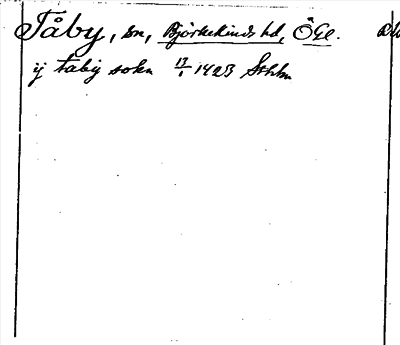 Tåby, sn, Björkekinds hd, ÖGl.
ij tabij sokn 13/1 1423 Sthlm